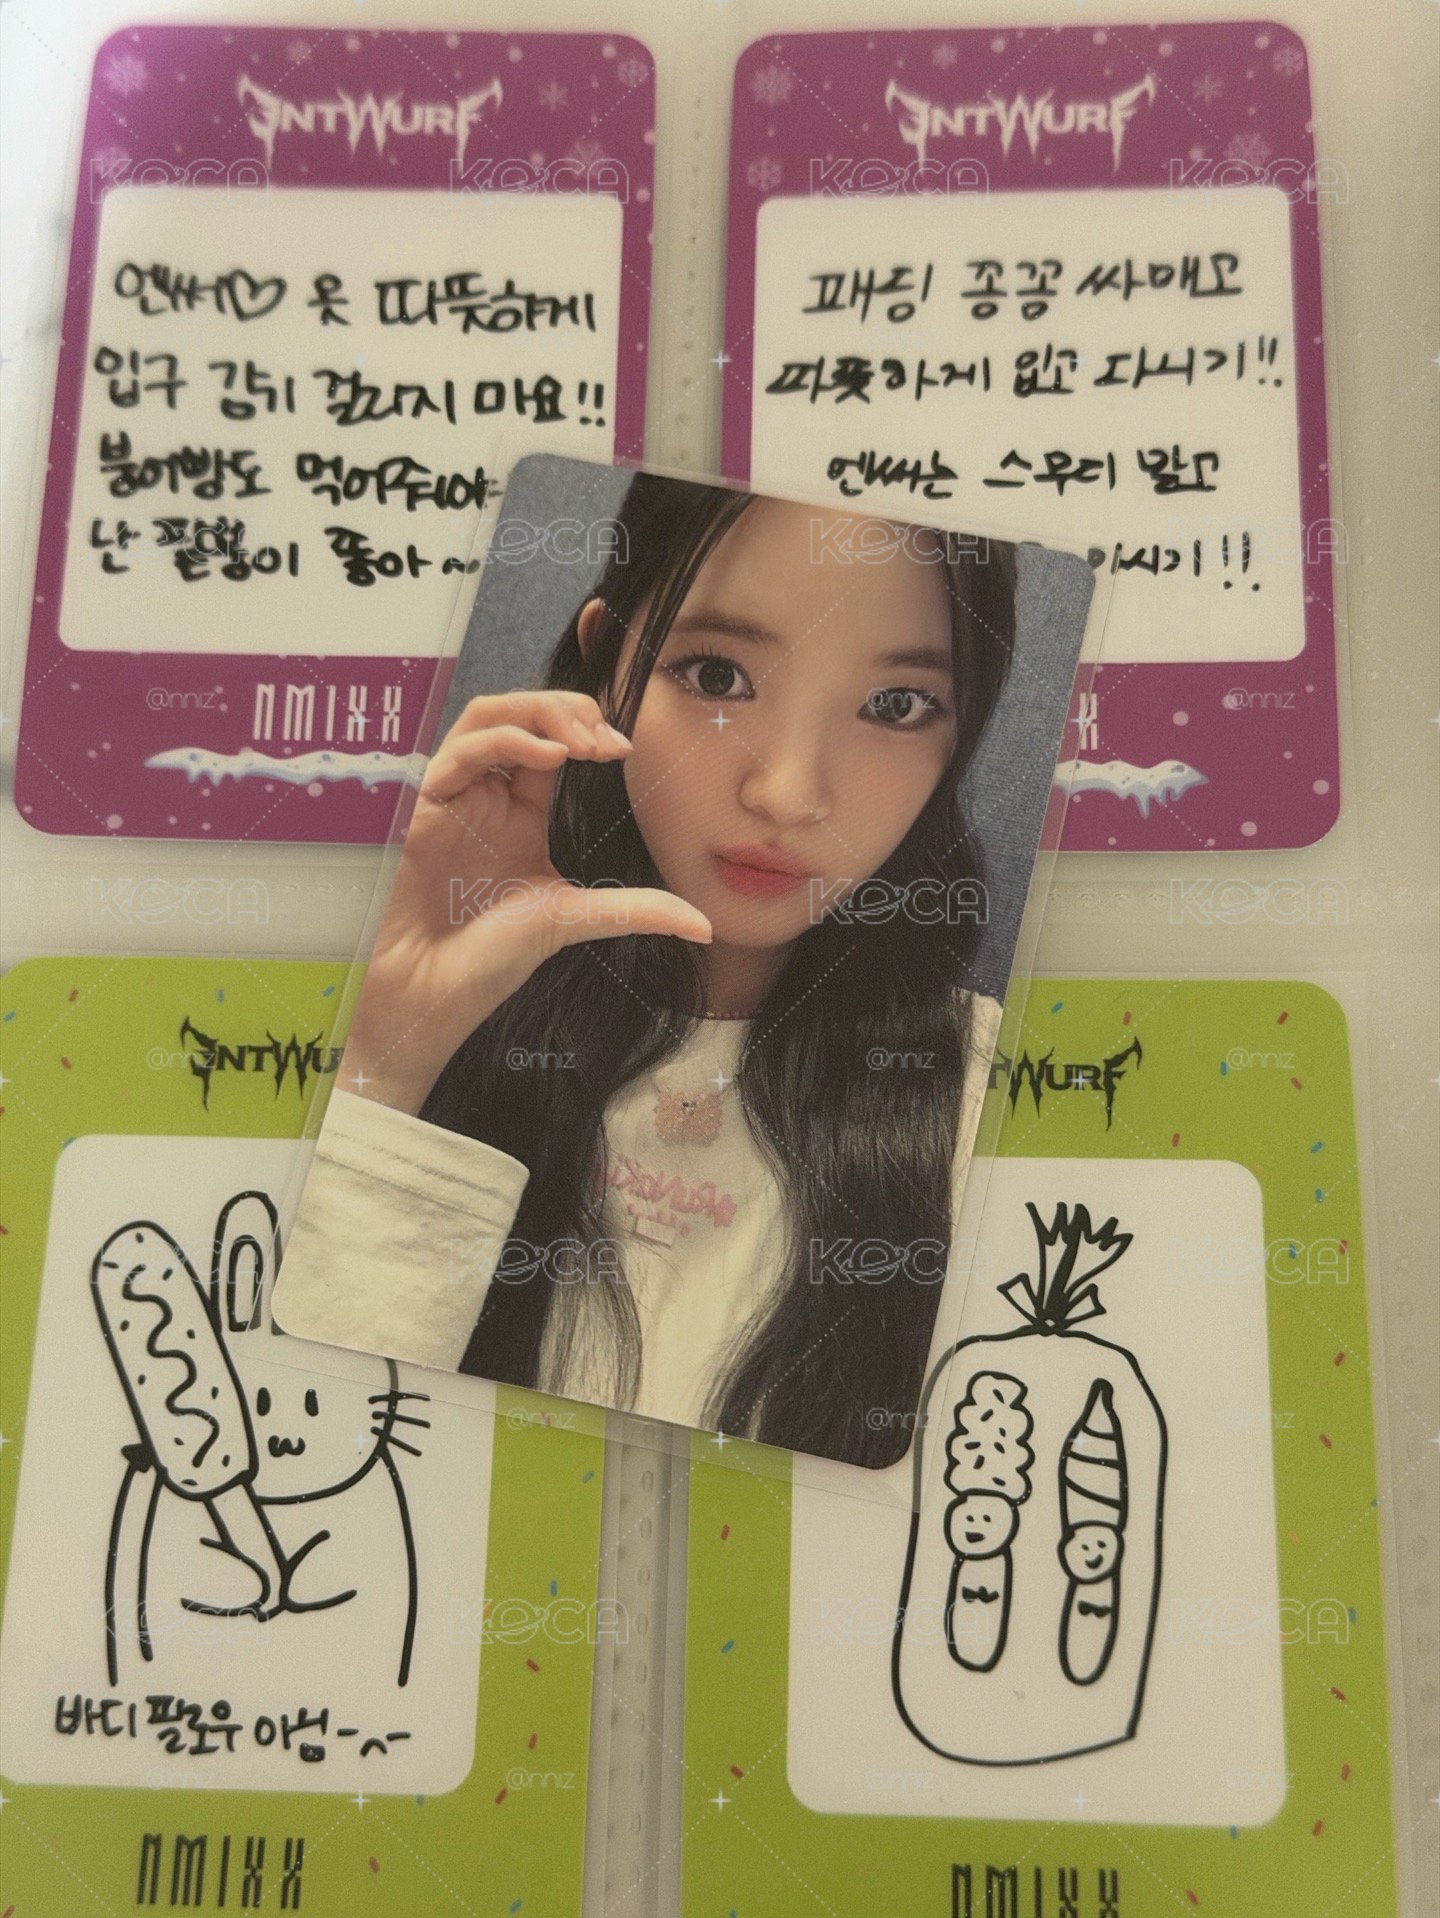 ENTWURF
엔써♡ 옷 따뜻하게
입구 감기 걸리지 마요!!
붕어빵도 먹어줘야
난 팥붕이 좋아~
NMIXX
ENTWURF
패딩 꽁꽁 싸매고
따뜻하게 입고 다시기!!
엔써는 스무디 말고
마시기!!
X
ENTWU
바디필로우 아님-^-
NMIXX
NTWURF
NMIXX
#RUNOKI
KOCA
@nniz